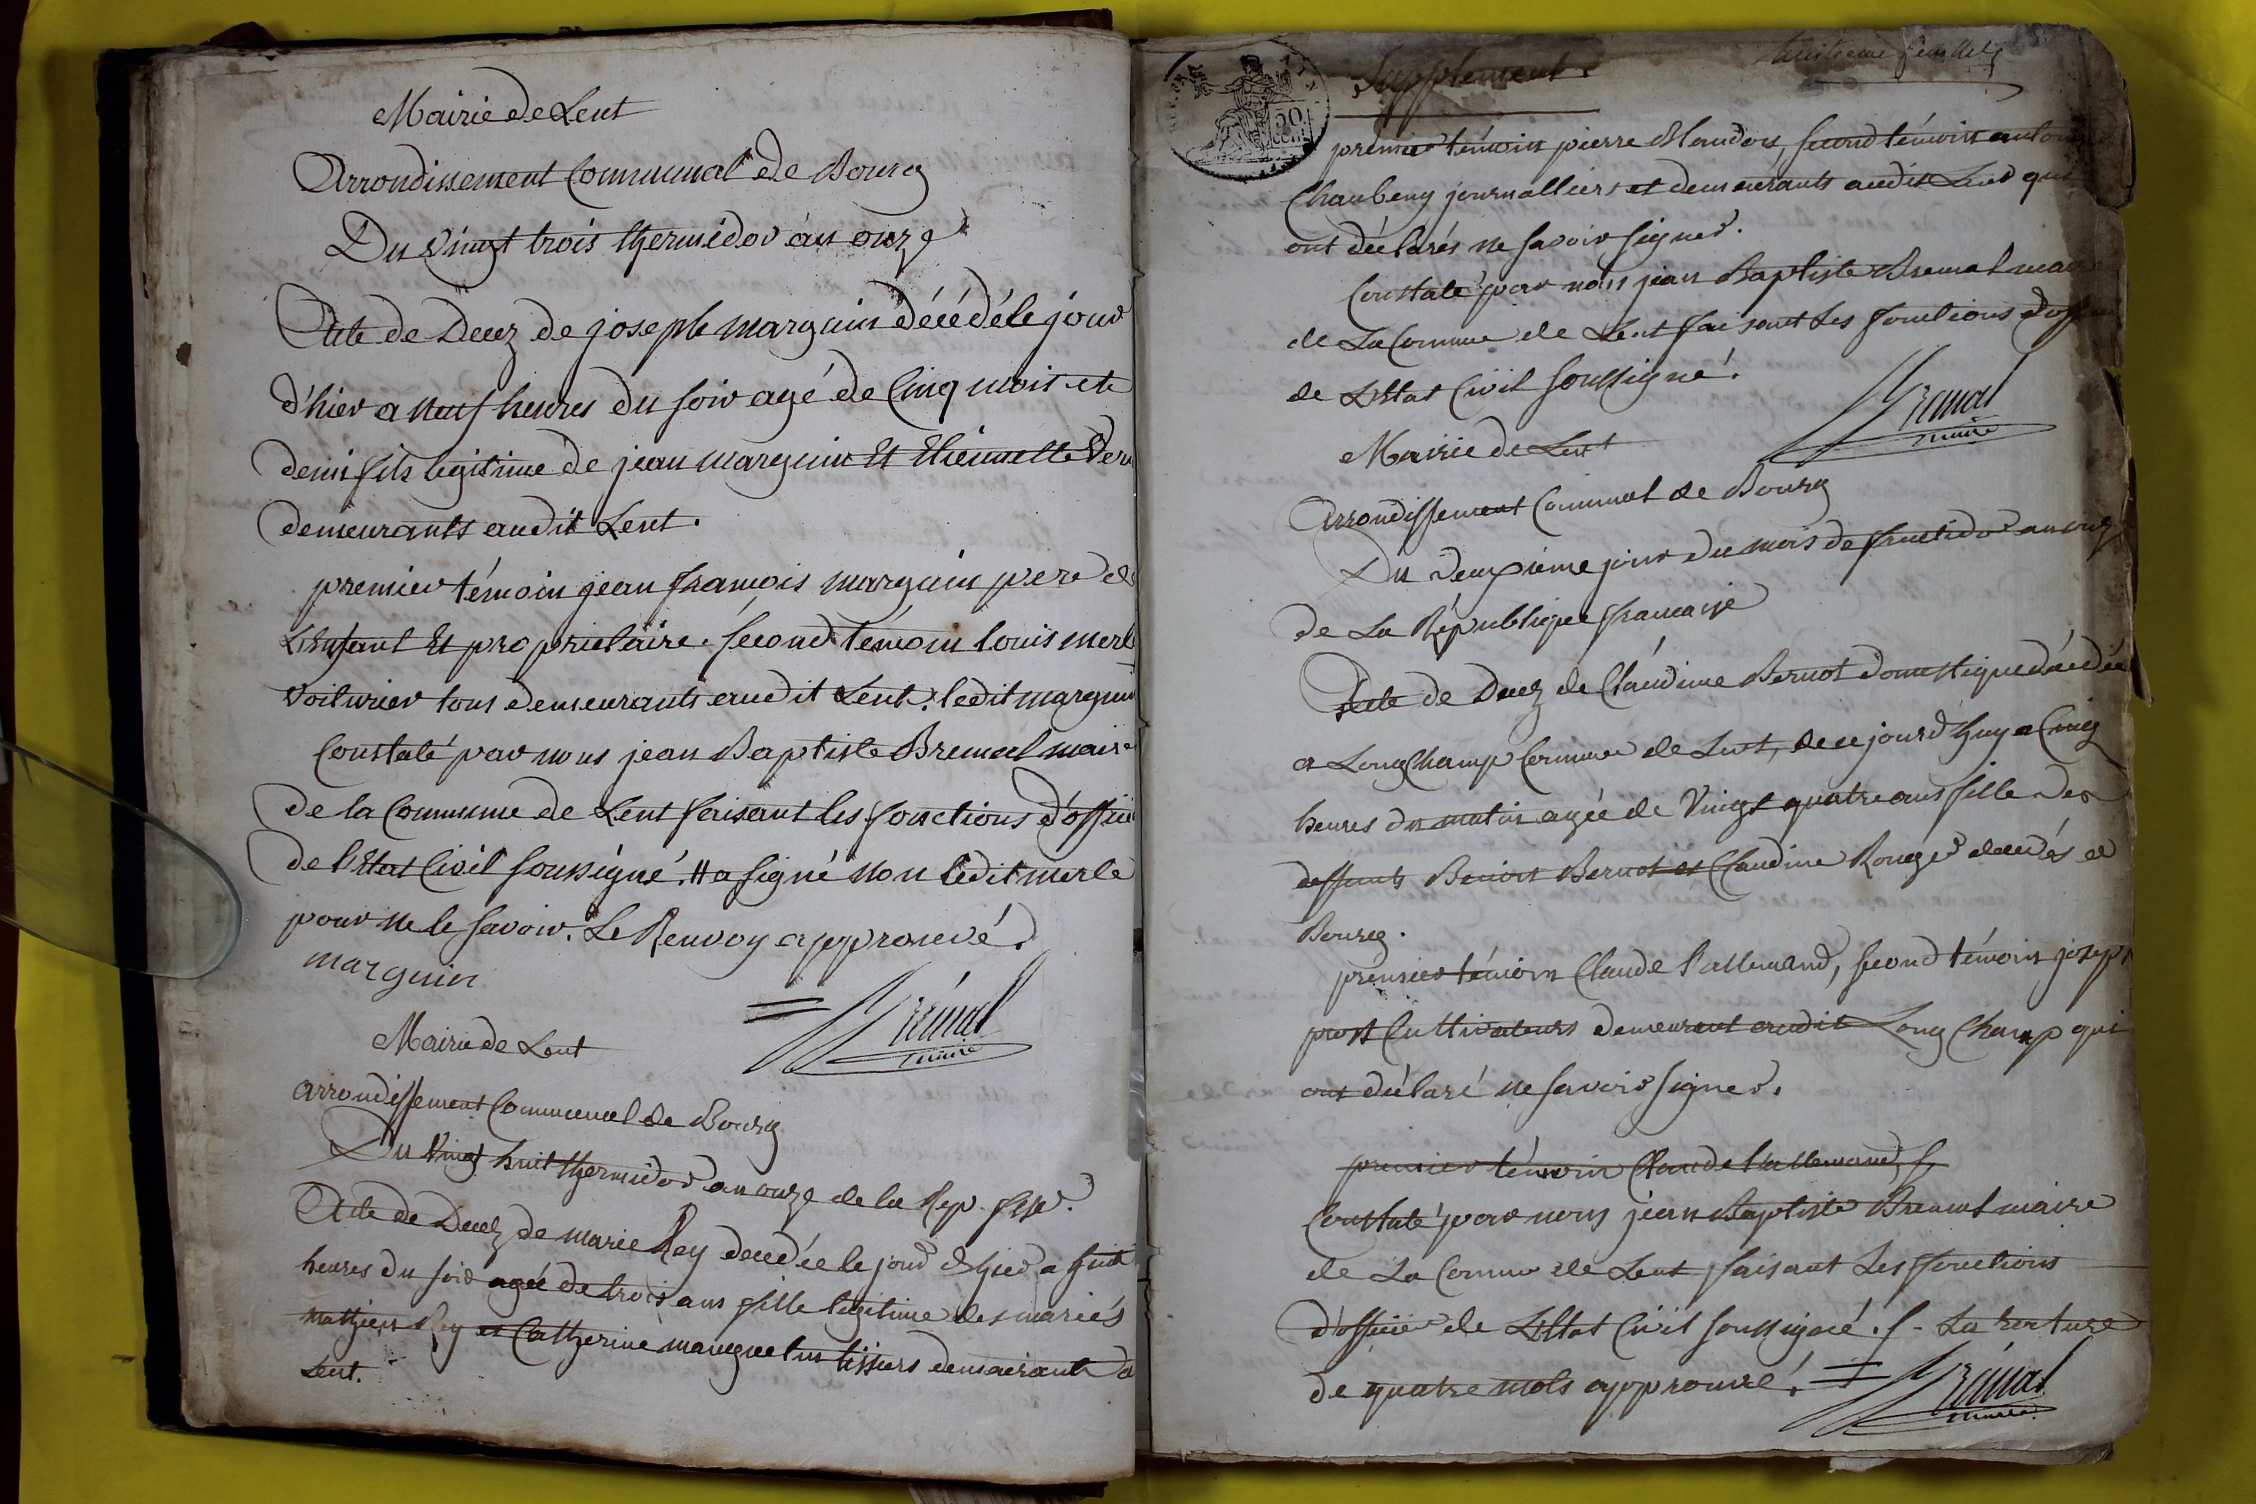 Mairie de Lent
Arrondissement Communal de Bourg
Du Vingt trois thermidor an onze
Acte de Decez de joseph marguin décédé le jour
d'hier a neuf heures du soir agé de Cinq mois et
demi fils legitime de jean marguin Et Etiennette
demeurants audit Lent.
premier témoin jean francois marguin pere de
L'Enfant Et proprietaire. second témoin louis merle
voiturier tous demeurants audit Lent. ledit marguin
Constaté par nous jean Baptiste Bremal maire
de la Commune de Lent faisant les fonctions d'officier
de l'Etat Civil soussigné. # a signé non ledit merle
pour ne le savoir. Le Renvoy approuvé.
marguin
Brémal
maire
Mairie de Lent
arrondissement Communal de Bourg
Du Vingt huit thermidor an onze de la Rep. fse.
Acte de Decez de marie Rey decedée le jour d'hier a huit
heures du soir agée de trois ans fille legitime des mariés
mathieu Rey et Catherine tissiers demeurants a
Lent.
Supplement
huitieme feuillet
50 cent
premier témoin pierre Blandon, second témoin
journalliers et demeurants audit Lent qui
ont déclarés ne savoir signer.
Constaté par nous jean Baptiste Bremal maire
de La Commune de Lent faisant Les fonctions d'officier
de L'Etat Civil soussigné.
Brémal
maire
Mairie de Lent
Arrondissement Communal de Bourg
Du deuxième jour du mois de fructidor an onze
de La République francaise
Acte de Decez de Claudine Bernot domestique décédée
a Longchamp Commune de Lent, de ce jourd'huy a Cinq
heures du matin agée de Vingt quatre ans fille des
deffunts Benoit Bernot et Claudine Rouger decedés a
Bourg.
premier témoin Claude l'allemand, second témoin joseph
prost Cultivateurs demeurant audit Long Champ qui
ont déclaré ne savoir signer.
premier témoin Claude l'allemand, s
Constaté par nous jean Baptiste Bremal maire
de La Commune de Lent faisant Les fonctions
d'officier de L'Etat Civil soussigné. - La rature
de quatre mots approuvé.
Brémal
maire